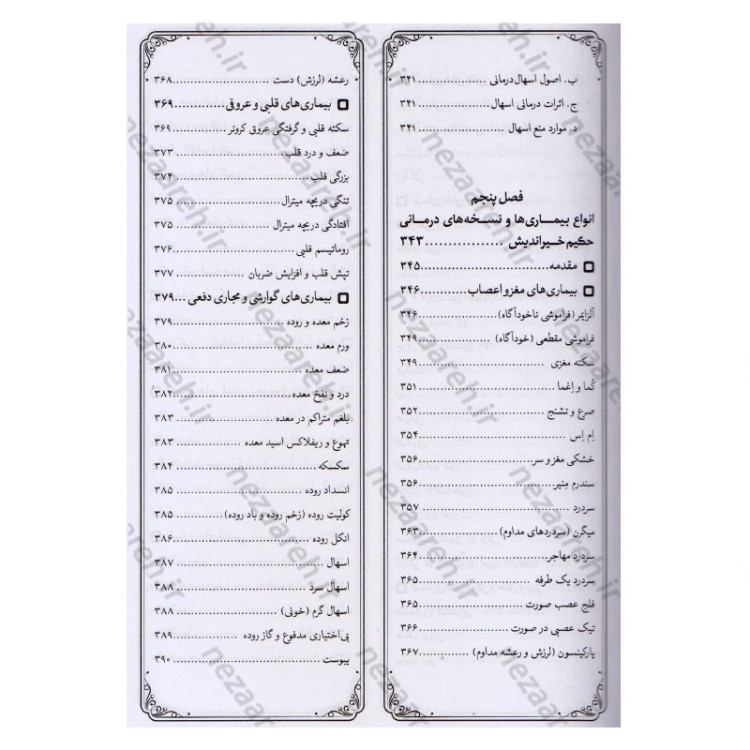 ب. اصول اسهال‌درمانی ................ ۳۴۱
ج. اثرات درمانی اسهال ................ ۳۴۱
د. موارد منع اسهال ................ ۳۴۱
فصل پنجم
انواع بیمـاری‌ها و نسـخه‌های درمـانی
حکیم خـیراندیش ................ ۳۴۳
مقدمه ................ ۳۴۵
بیماری‌های مغز و اعصاب ................ ۳۴۶
آلزایمر (فراموشی ناخودآگاه) ................ ۳۴۶
فراموشی مقطعی (خودآگاه) ................ ۳۴۹
سکته مغزی ................ ۳۴۹
کُما و اِغما ................ ۳۵۱
صرع و تشنج ................ ۳۵۲
اِم اِس ................ ۳۵۴
خشکی مغز و سر ................ ۳۵۶
سندرم مِنیر ................ ۳۵۶
سردرد ................ ۳۵۷
میگرن (سردردهای مداوم) ................ ۳۶۳
سردرد مهاجر ................ ۳۶۴
سردرد یک طرفه ................ ۳۶۵
فلج عصب صورت ................ ۳۶۵
تیک عصبی در صورت ................ ۳۶۶
پارکینسون (لرزش و رعشه مداوم) ................ ۳۶۷
رعشه (لرزش) دست ................ ۳۶۸
بیماری‌های قلبی و عروقی ................ ۳۶۹
سکته قلبی و گرفتگی عروق کرونر ................ ۳۶۹
ضعف و درد قلب ................ ۳۷۳
بزرگی قلب ................ ۳۷۴
تنگی دریچه میترال ................ ۳۷۵
افتادگی دریچه میترال ................ ۳۷۵
روماتیسم قلبی ................ ۳۷۶
تپش قلب و افزایش ضربان ................ ۳۷۷
بیماری‌های گوارشی و مجاری دفعی ... ۳۷۹
زخم معده و روده ................ ۳۷۹
ورم معده ................ ۳۸۰
ضعف معده ................ ۳۸۱
درد و نفخ معده ................ ۳۸۲
بلغم متراکم در معده ................ ۳۸۳
تهوع و ریفلاکس اسید معده ................ ۳۸۳
سکسکه ................ ۳۸۴
انسداد روده ................ ۳۸۵
کولیت روده (زخم روده و باد روده) ................ ۳۸۵
انگل روده ................ ۳۸۶
اسهال ................ ۳۸۷
اسهال سرد ................ ۳۸۸
اسهال گرم (خونی) ................ ۳۸۸
بی‌اختیاری مدفوع و گاز روده ................ ۳۸۹
یبوست ................ ۳۹۰
nezaareh.ir